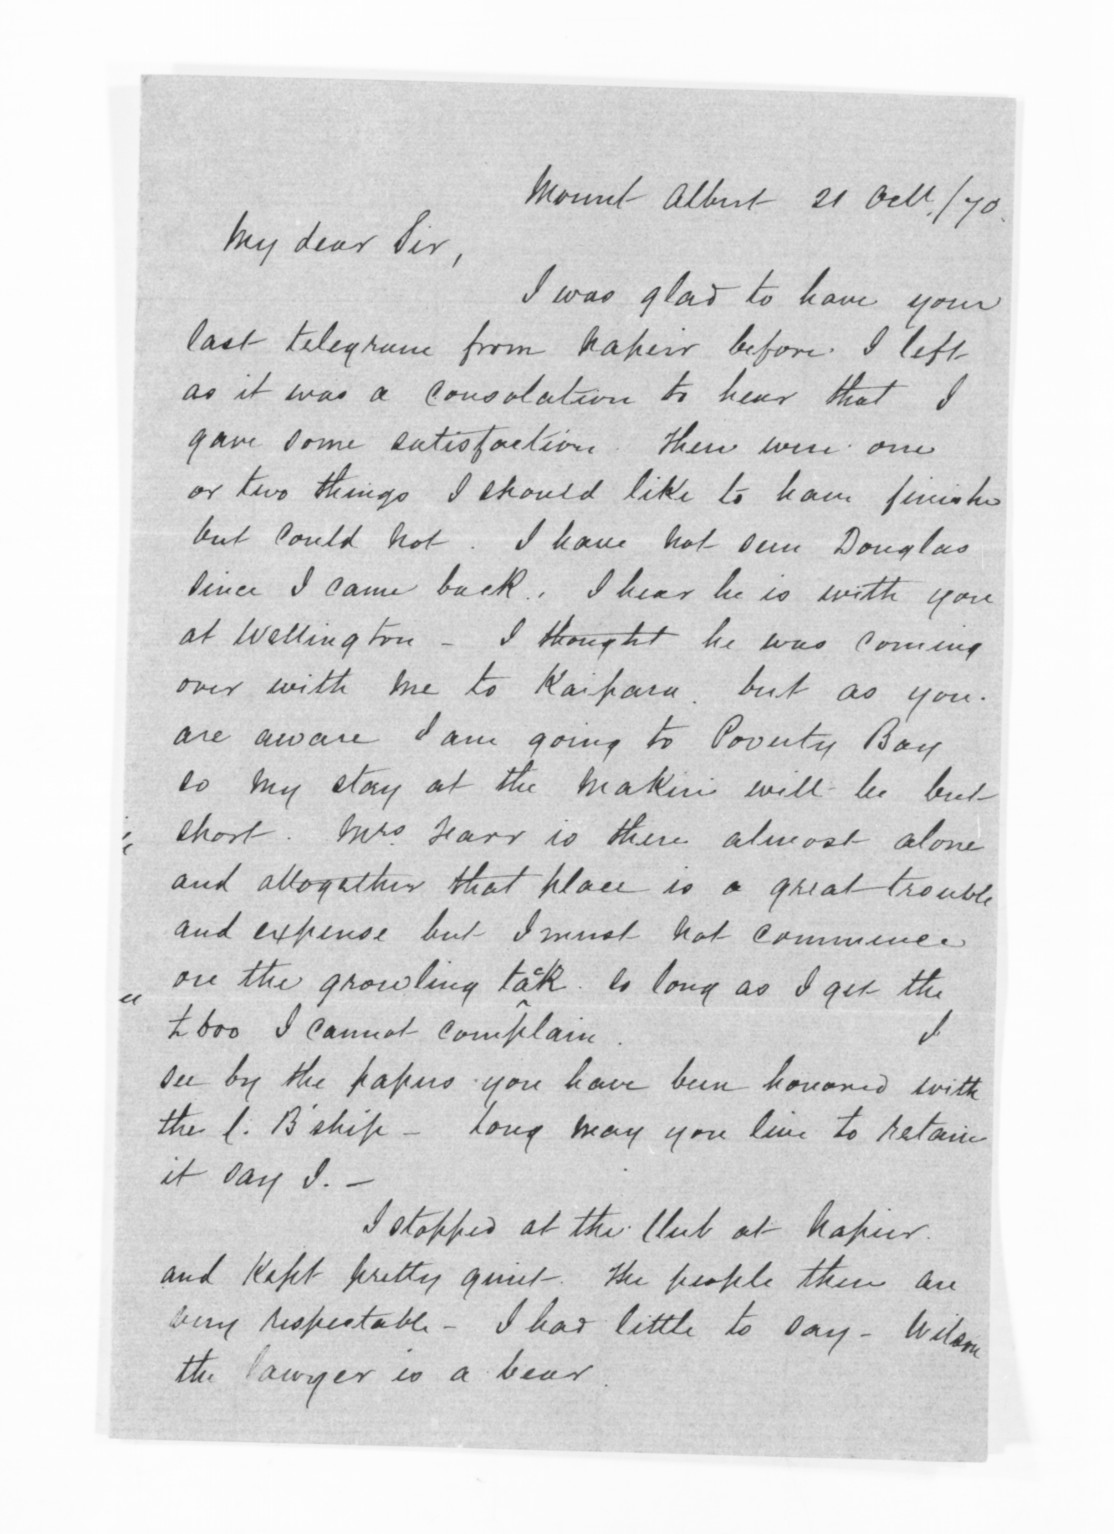 Mount Albert 21 Octr./70.
My dear Sir,
I was glad to have your
last telegram from Napier before I left
as it was a consolation to hear that I
gave some satisfaction. There were one
or two things I should like to have finishe
but could not. I have not seen Douglas
since I came back. I hear he is with you
at Wellington - I thought he was coming
over with me to Kaipara. but as you
are aware I am going to Poverty Bay
so my stay at the Makiri will be but
short. Mrs. Harr is there almost alone
and altogether that place is a great trouble
and expense but I must not commence
on the growling tack. So long as I get the
£600 I cannot complain. I
see by the papers you have been honored with
the C. B'ship - Long may you live to retain
it say I. -
I stopped at the Club at Napier.
and kept pretty quiet. The people there are
very respectable - I had little to say - Wilson
the lawyer is a bear.